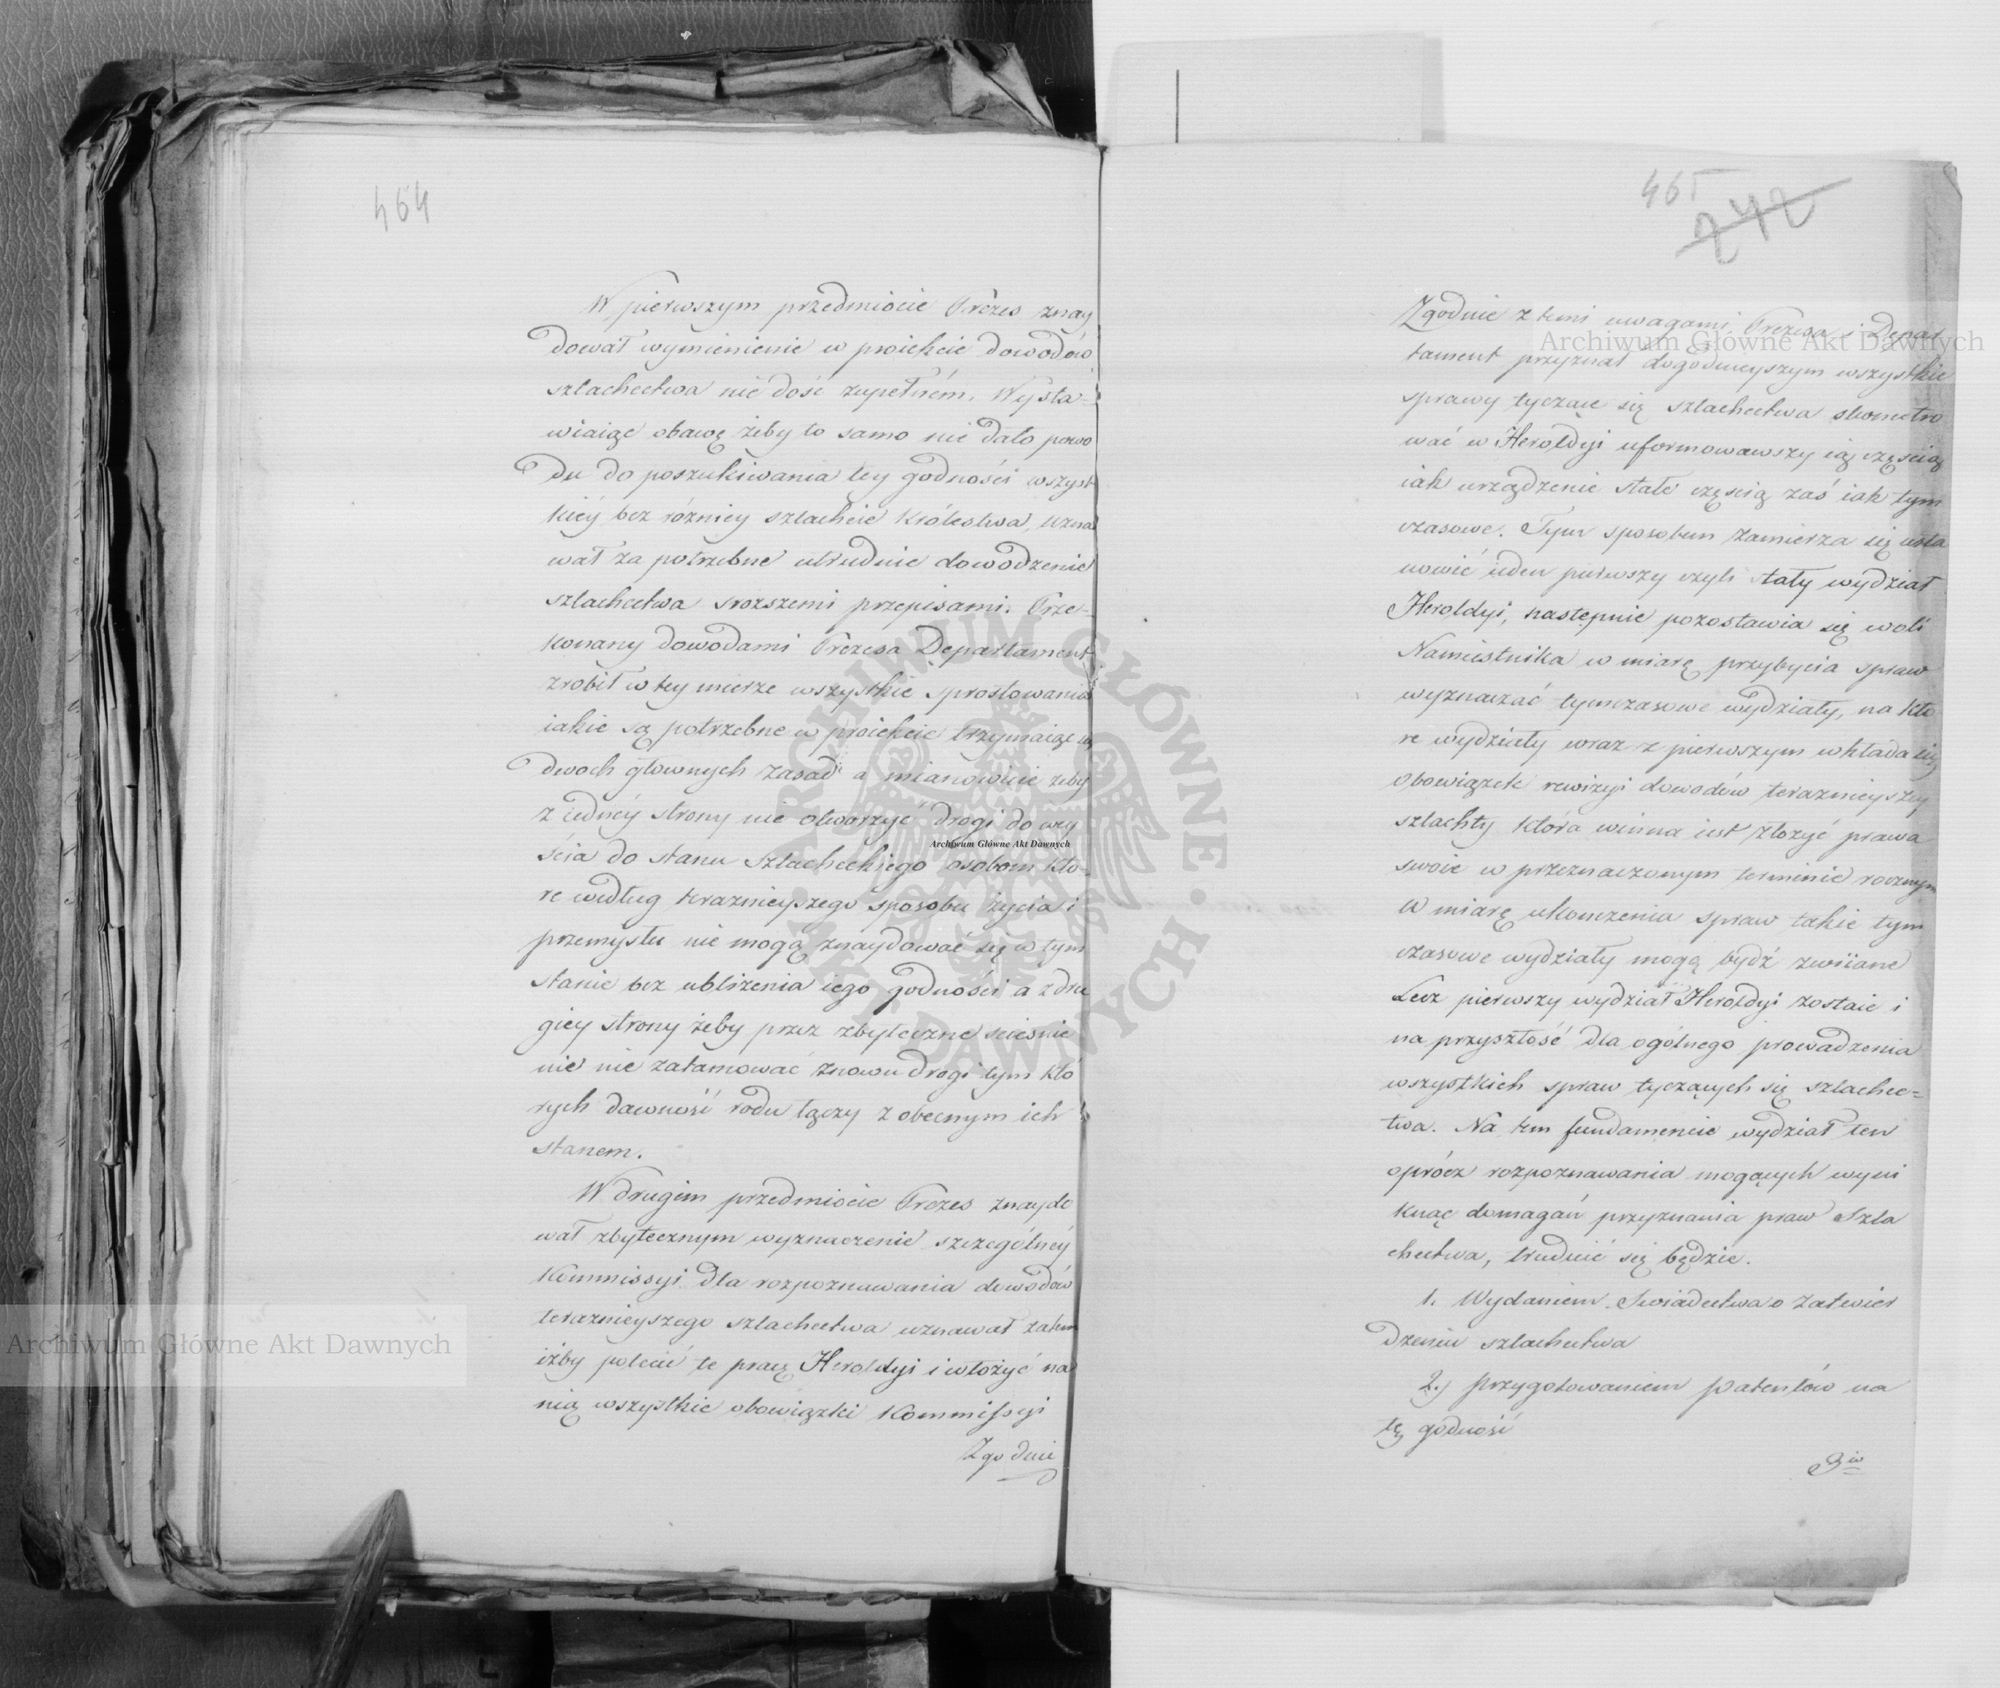 464
W pierwszym przedmiocie Prezes znay
dował wymienienie w proiekcie dowodów
szlachectwa nie dość zupełném. Wysta-
wiaiąc obawę żeby to samo nie dało powo
du do poszukiwania tey godności wszyst
kiéy bez różnicy szlachcie Królestwa, uzna
wał za potrzebne utrudnić dowodzenie
szlachectwa srozszemi przepisami. Prze-
konany dowodami Prezesa Departament
zrobił w tey mierze wszystkie sprostowania
iakie są potrzebne w proiekcie trzymaiąc się
dwoch głownych zasad a mianowicie żeby
z iednéy strony nie otworzyć drogi do wey
ścia do stanu szlacheckiego osobom któ-
re według teraznieyszego sposobu życia i
przemysłu nie mogą znaydować się w tym
stanie bez ubliżenia iego godności a z dru
giey strony żeby przez zbyteczne ścieśnie
nie nie zatamować znowu drogi tym któ
rych dawność rodu łączy z obecnym ich
stanem.
W drugim przedmiocie Prezes znaydo
wał zbytecznym wyznaczenie szczególnéy
Kommissyi dla rozpoznawania dowodów
teraznieyszego szlachectwa uznawał zatem
iżby polecić tę pracę Heroldyi i włożyć na
nią wszystkie obowiązki Kommissyi
Zgodnie
465
242
Zgodnie z temi uwagami Prezesa i Depar
tament przyznał dogodnieyszym wszystkie
sprawy tyczące się szlachectwa skoncetro
wać w Heroldyi uformowawszy ią częscią
iak urządzenie stałe częscią zaś iak tym
czasowe. Tym sposobem zamierza się usta
nowić ieden pierwszy czyli stały wydział
Heroldyi, następnie pozostawia się woli
Namiestnika w miarę przybycia spraw
wyznaczać tymczasowe wydziały, na któ
re wydziały wraz z pierwszym wkłada się
obowiązek rewizyi dowodów teraznieyszey
szlachty która winna iest złożyć prawa
swoie w przeznaczonym terminie rocznym
W miarę ukonczenia spraw takie tym
czasowe wydziały mogą bydź zwiiane
Lecz pierwszy wydział Heroldyi zostaie i
na przyszłość dla ogólnego prowadzenia
wszystkich spraw tyczących się szlachec=
twa. Na tem fundamencie wydział ten
oprócz rozpoznawania mogących wyni
knąć domagań przyznania praw Szla
chectwa, trudnić się będzie.
1. Wydaniem Swiadectwa o zatwier
dzeniu szlachectwa
2.) przygotowaniem patentów na
tę godność
3io
Archiwum Główne Akt Dawnych
Archiwum Główne Akt Dawnych
Archiwum Główne Akt Dawnych
ARCHIWUM GŁÓWNE · AKT DAWNYCH ·